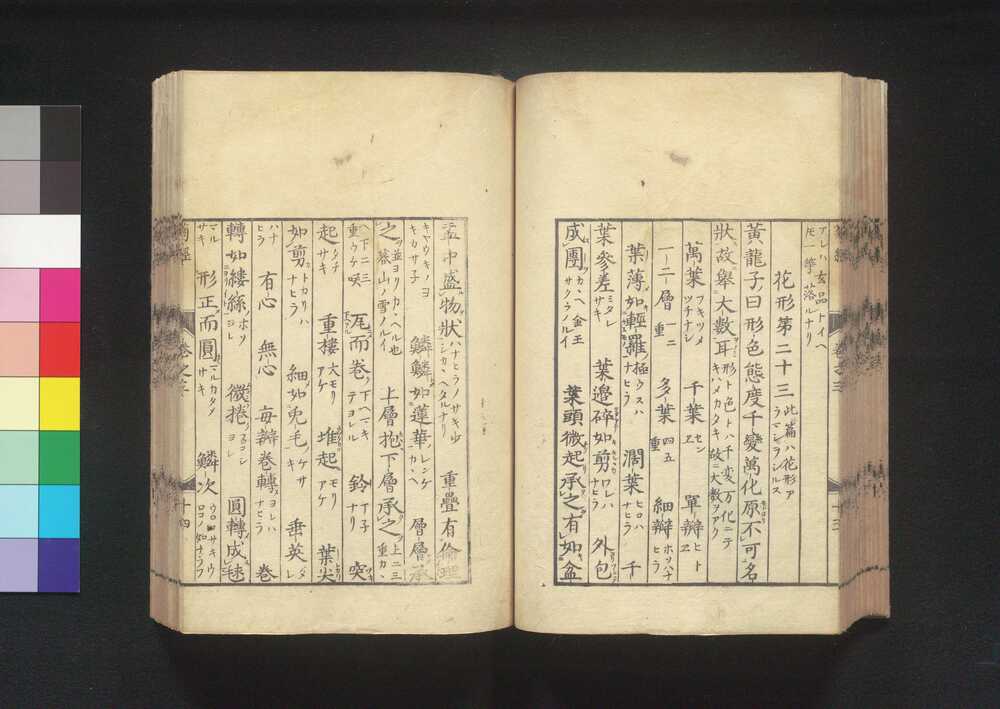 アレハ玄品トイヘ
凡一等落ルナリ
花形第二十三 此篇ハ花形ア
ラマシヲシルス
黃龍子曰形色態度千變萬化原不可名
狀故舉大數耳 形ト色トハ千変万化ニテ
キハメカタキ故ニ大數ヲアク
萬葉 千葉 單瓣 ヒトヱ
一二層 一二重 多葉 四五重 細瓣 ホソハナヒラ
葉薄如輕羅 極ウスハナヒラ 濶葉 ヒロハナヒラ 千
葉參差 ミタレサキ 葉邊碎如剪 ワレハナヒラ 外包
成團 カヽヘ金王サクラノルイ 葉頭微起承之有如盆
盂中盛物狀 重疊有倫理
キヤウキノヨキカサ子 鱗鱗如蓮華 レンゲカヽヘ 層層承
之 並ヨリカヽヘル也
蔡山ノ雪ノルイ 上層抱下層承之 上二三重カヽ
ヘ下二三重ウケ咲 瓦而卷 下ヘマキテヨレル 鈴 丁子ナリ 突
起 タチサキ 重樓 大モリアケ 堆起 モリアケ 葉尖
如剪 トカリハナヒラ 細如兎毛 ケサキ 垂英 タレ
ハナヒラ 有心 無心 每瓣卷轉 ヨレハナヒラ 卷
轉如縷絲 ホソヨレ 微捲 スコシヨレ 圓轉成毬
マルサキ 形正而圓 マルカタノサキ 鱗次 ウロコサキウロコノ如ナラフ
菊經 卷之下 十四